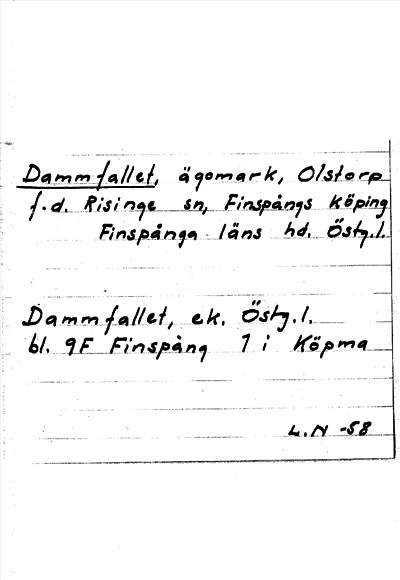 Dammfallet, ägomark, Olstorp
f.d. Risinge sn, Finspångs köping
Finspånga läns hd. Östg.l.
Dammfallet, ek. Östg.l.
bl. 9F Finspång 1 i Köpma
L.N -58